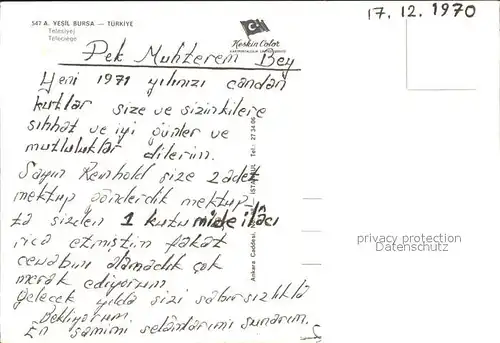 547 A. YEŞİL BURSA — TÜRKİYE
Telesiyej
Telesiege
Keskin Color
17. 12. 1970
Pek Muhterem Bey
Yeni 1971 yılınızı candan
kutlar size ve sizinkilere
sıhhat ve iyi günler ve
mutluluklar dilerim.
Sayın Reinhold size 2 adet
mektup gönderdik mektup-
ta sizden 1 kutu mide ilâcı
rica etmiştim fakat
cevabını alamadık çok
merak ediyorum.
Gelecek yılda sizi sabırsızlıkla
bekliyorum.
En samimi selâmlarımı sunarım.
Ankara Caddesi,
İSTANBUL Tel.: 27 34 06
privacy protection
Datenschutz